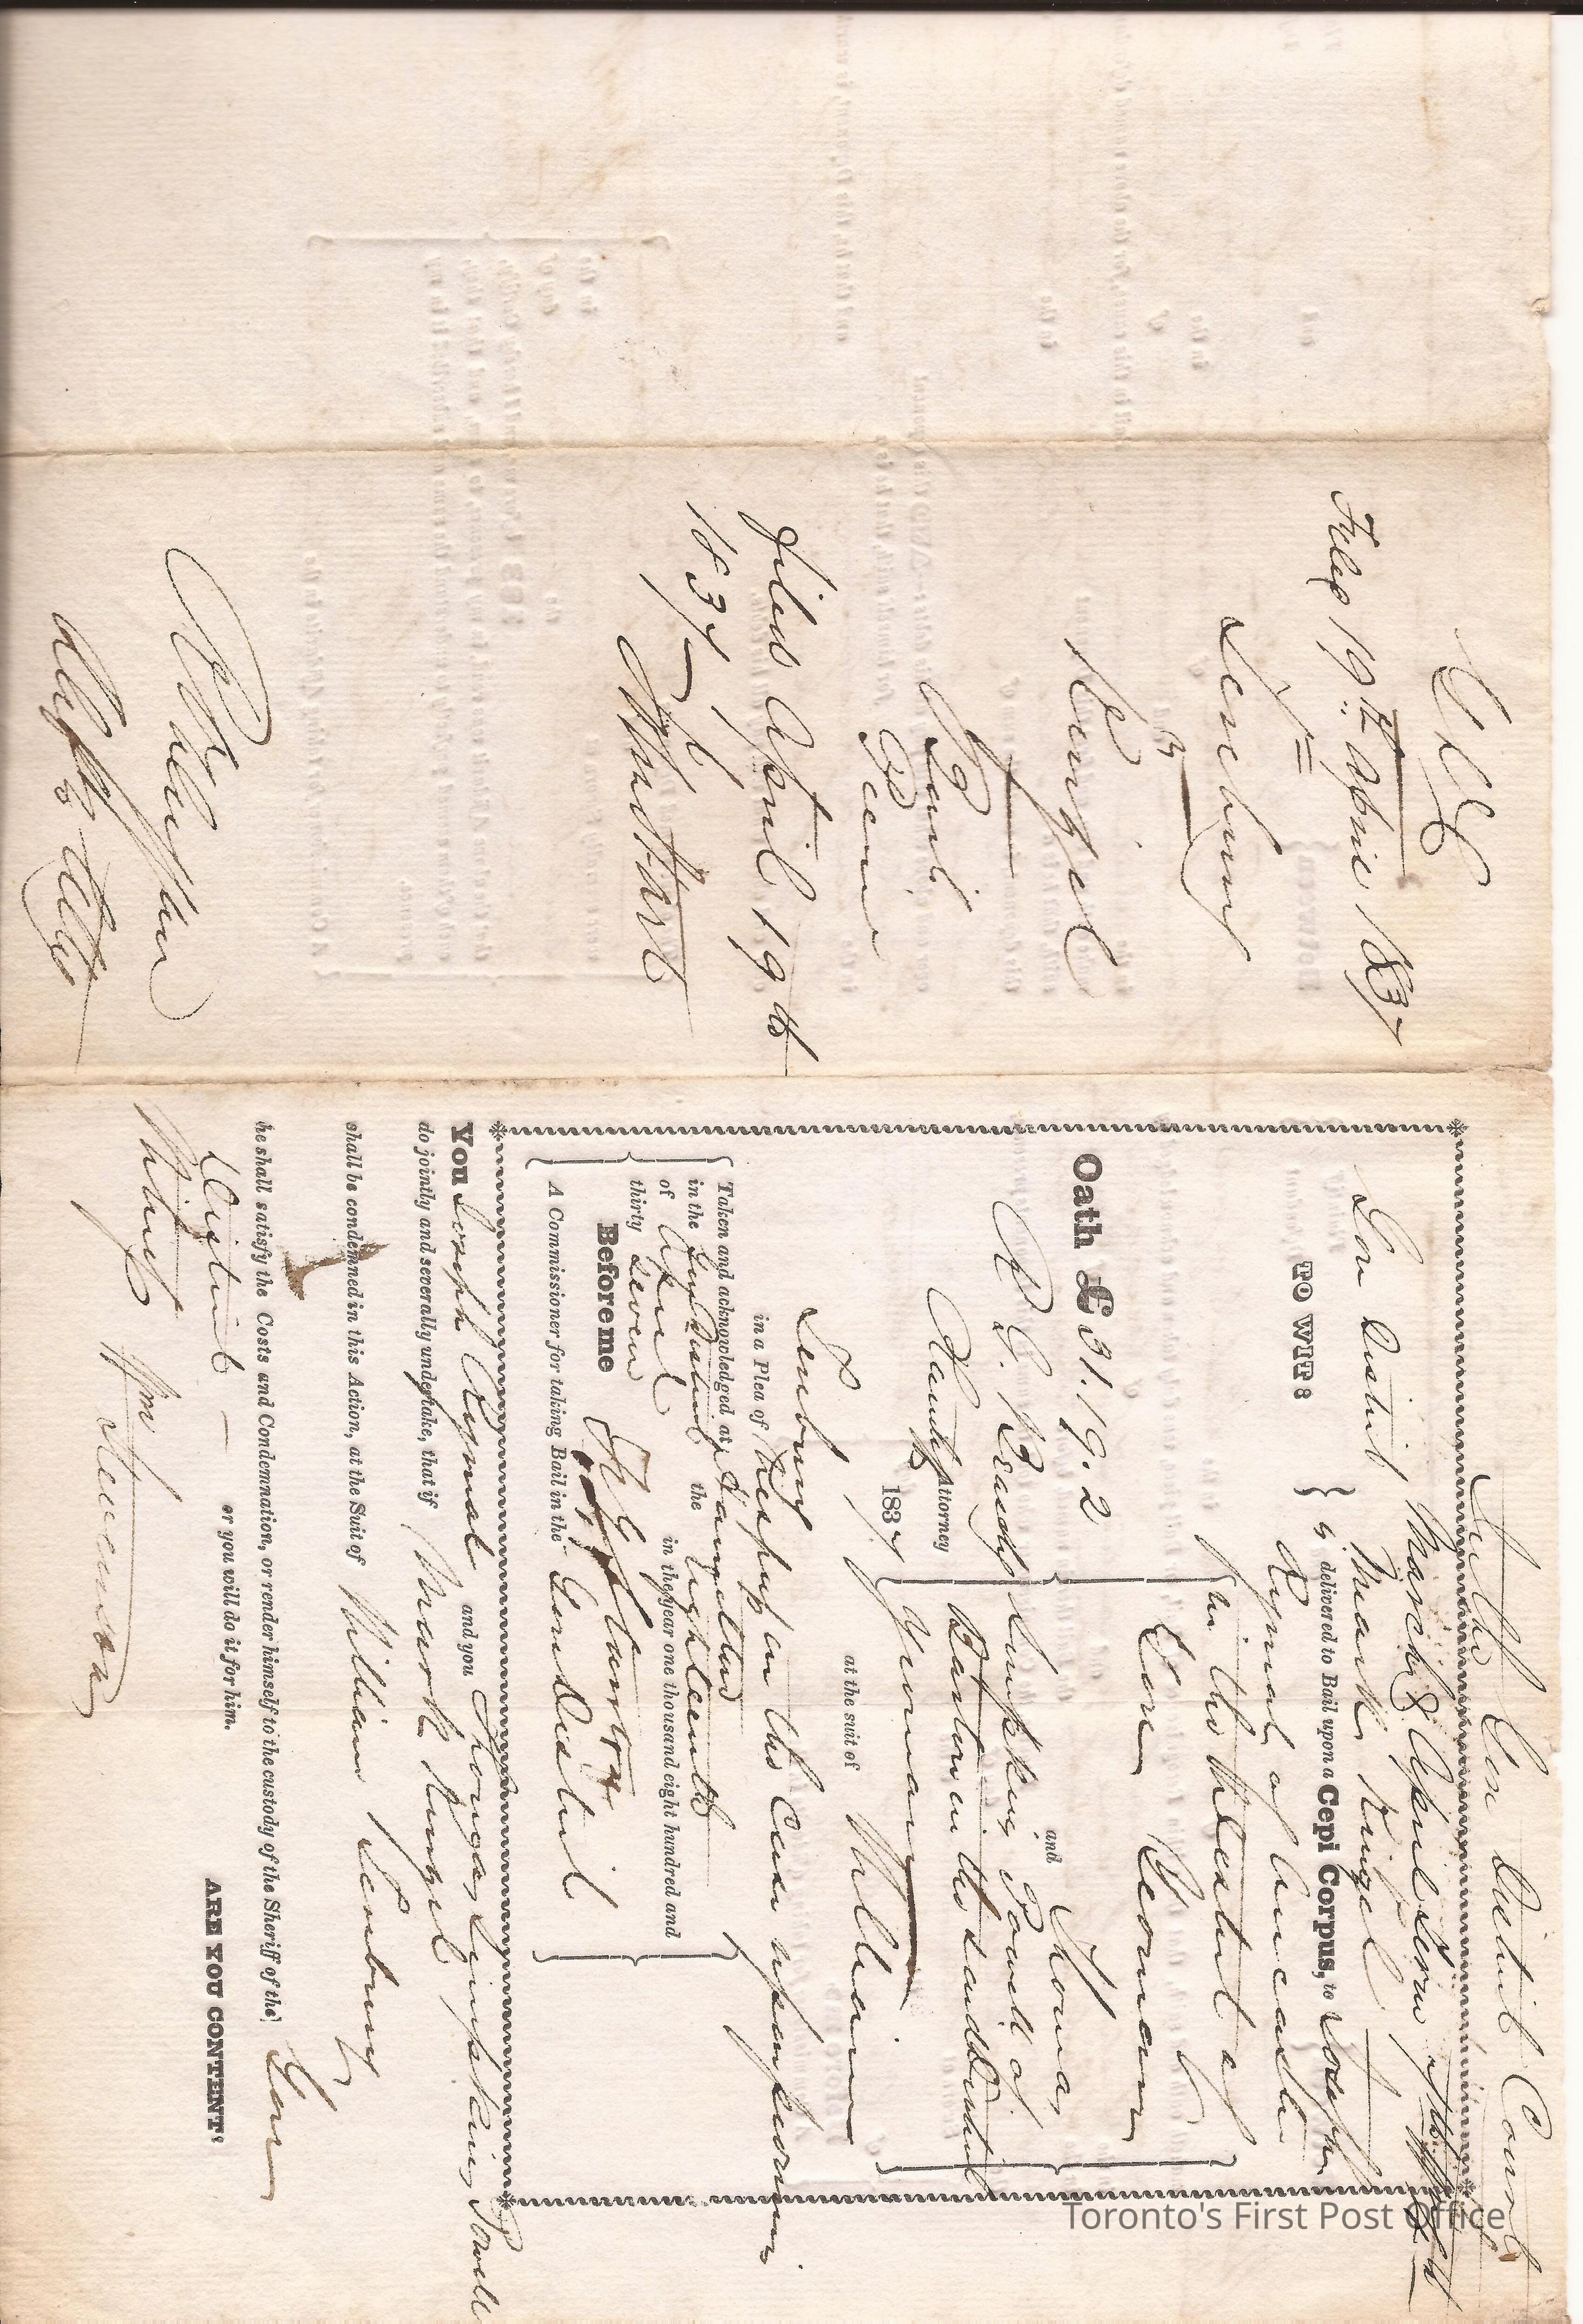 Filed 19th April 1837
Senbury
vs
Kingel
Bail
Piece
Filed April 19th
1837
Deft
In the Gore District Court
March & April Term 7th Will 4th
Gore District
TO WIT:
Mark Kingel
is delivered to Bail upon a Cepi Corpus, to Joseph
Rymal of Ancaster
in the District of
Gore Yeoman
Oath £ 31.19.2
and Thomas
Simpkins Powell of
Barton in the said District
Yeoman
Attorney
1837
at the suit of William
Senbury
in a Plea of Trespass on the Case upon promises
Taken and acknowledged at Hamilton
in the Gore District the Eighteenth
of April in the year one thousand eight hundred and
thirty seven
Before me
A Commissioner for taking Bail in the Gore District
You Joseph Rymal and you Thomas Simpkins Powell
do jointly and severally undertake, that if Mark Kingel
shall be condemned in this Action, at the Suit of William Senbury
he shall satisfy the Costs and Condemnation, or render himself to the custody of the Sheriff of the Gore
District or you will do it for him.
ARE YOU CONTENT?
Witness Wm Stevenson
Toronto's First Post Office